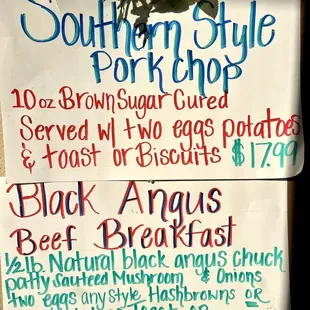 Southern Style
Pork chop
10 oz Brown Sugar Cured
Served w/ two eggs potatoes
& toast or Biscuits $17.99
Black Angus
Beef Breakfast
1/2 lb Natural black angus chuck
patty sauteed Mushroom & Onions
two eggs any style Hashbrowns or